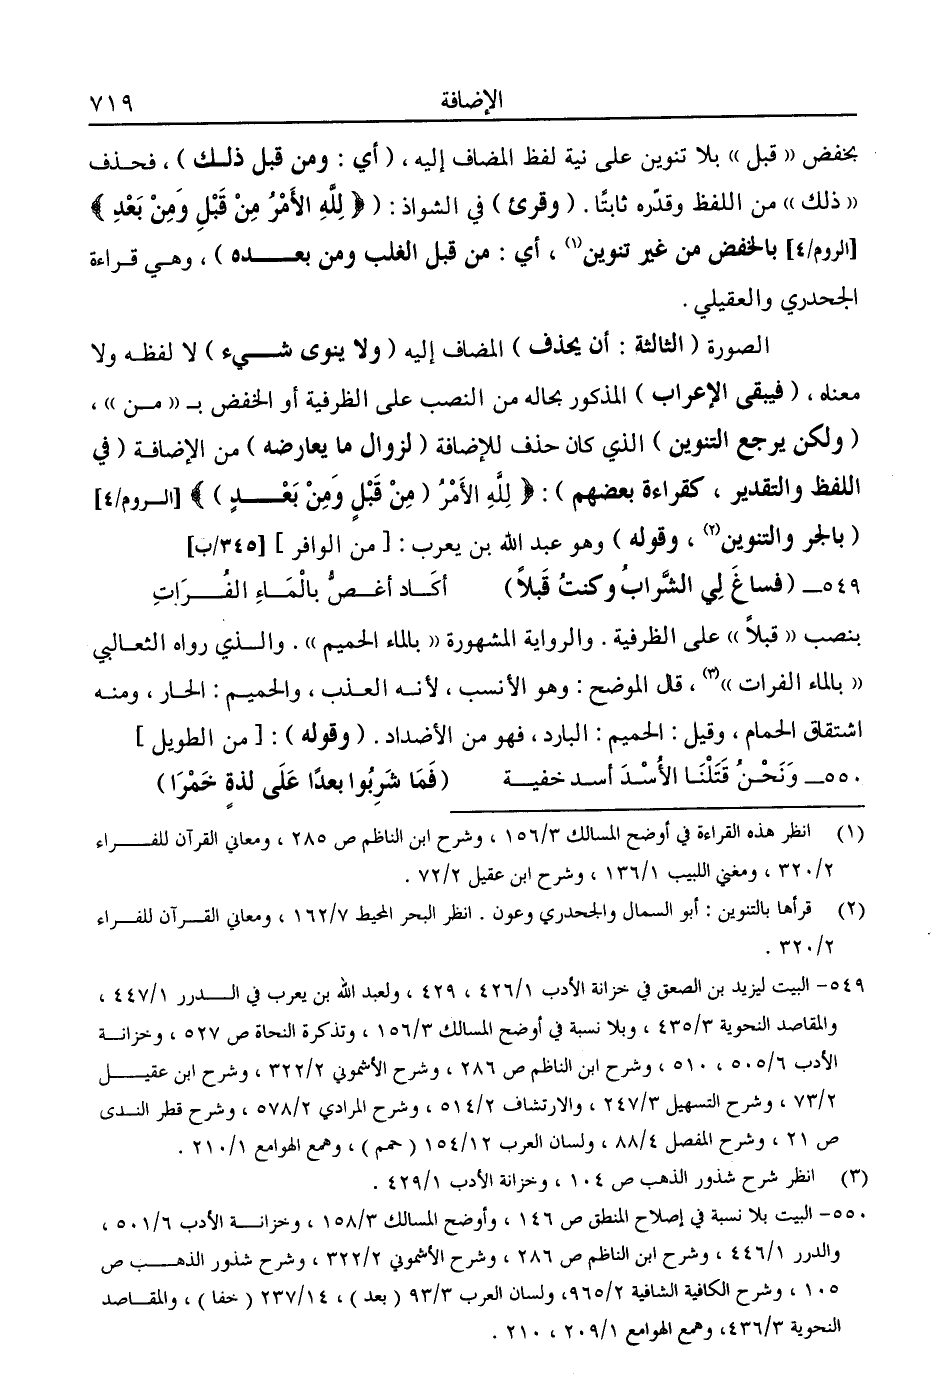 الإضافة ٧١٩
بخفض «قبل» بلا تنوين على نية لفظ المضاف إليه، (أي: ومن قبل ذلك)، فحذف
«ذلك» من اللفظ وقدّره ثابتًا. (وقرئ) في الشواذ: (﴿لِلَّهِ الأَمْرُ مِنْ قَبْلِ وَمِنْ بَعْدِ﴾
[الروم/٤] بالخفض من غير تنوين(١)، أي: من قبل الغلب ومن بعده)، وهي قراءة
الجحدري والعقيلي.
الصورة (الثالثة: أن يحذف) المضاف إليه (ولا ينوى شيء) لا لفظه ولا
معناه، (فيبقى الإعراب) المذكور بحاله من النصب على الظرفية أو الخفض بـ «من»،
(ولكن يرجع التنوين) الذي كان حذف للإضافة (لزوال ما يعارضه) من الإضافة (في
اللفظ والتقدير، كقراءة بعضهم): ﴿لِلَّهِ الأَمْرُ (مِنْ قَبْلٍ وَمِنْ بَعْدٍ)﴾ [الروم/٤]
(بالجر والتنوين(٢)، وقوله) وهو عبد الله بن يعرب: [من الوافر] [٣٤٥/ب]
٥٤٩ــ (فساغَ لِي الشَّرابُ وكنتُ قَبلاً) أكَاد أغصُّ بالْمَاءِ الفُرَاتِ
بنصب «قبلاً» على الظرفية. والرواية المشهورة «بالماء الحميم». والذي رواه الثعالبي
«بالماء الفرات»(٣)، قال الموضح: وهو الأنسب، لأنه العذب، والحميم: الحار، ومنه
اشتقاق الحمام، وقيل: الحميم: البارد، فهو من الأضداد. (وقوله): [من الطويل]
٥٥٠ــ وَنَحْنُ قَتَلْنَا الأُسْدَ أسد خفية (فَمَا شَرِبُوا بعدًا عَلَى لذةٍ خَمْرَا)
(١) انظر هذه القراءة في أوضح المسالك ١٥٦/٣، وشرح ابن الناظم ص ٢٨٥، ومعاني القرآن للفراء
٣٢٠/٢، ومغني اللبيب ١٣٦/١، وشرح ابن عقيل ٧٢/٢.
(٢) قرأها بالتنوين: أبو السمال والجحدري وعون. انظر البحر المحيط ١٦٢/٧، ومعاني القرآن للفراء
٣٢٠/٢.
٥٤٩- البيت ليزيد بن الصعق في خزانة الأدب ٤٢٦/١، ٤٢٩، ولعبد الله بن يعرب في الدرر ٤٤٧/١،
والمقاصد النحوية ٤٣٥/٣، وبلا نسبة في أوضح المسالك ١٥٦/٣، وتذكرة النحاة ص ٥٢٧، وخزانة
الأدب ٥٠٥/٦، ٥١٠، وشرح ابن الناظم ص ٢٨٦، وشرح الأشموني ٣٢٢/٢، وشرح ابن عقيل
٧٣/٢، وشرح التسهيل ٢٤٧/٣، والارتشاف ٥١٤/٢، وشرح المرادي ٥٧٨/٢، وشرح قطر الندى
ص ٢١، وشرح المفصل ٨٨/٤، ولسان العرب ١٥٤/١٢ (حمم)، وهمع الهوامع ٢١٠/١.
(٣) انظر شرح شذور الذهب ص ١٠٤، وخزانة الأدب ٤٢٩/١.
٥٥٠- البيت بلا نسبة في إصلاح المنطق ص ١٤٦، وأوضح المسالك ١٥٨/٣، وخزانة الأدب ٥٠١/٦،
والدرر ٤٤٦/١، وشرح ابن الناظم ص ٢٨٦، وشرح الأشموني ٣٢٢/٢، وشرح شذور الذهب ص
١٠٥، وشرح الكافية الشافية ٩٦٥/٢، ولسان العرب ٩٣/٣ (بعد)، ٢٣٧/١٤ (خفا)، والمقاصد
النحوية ٤٣٦/٣، وهمع الهوامع ٢٠٩/١، ٢١٠.